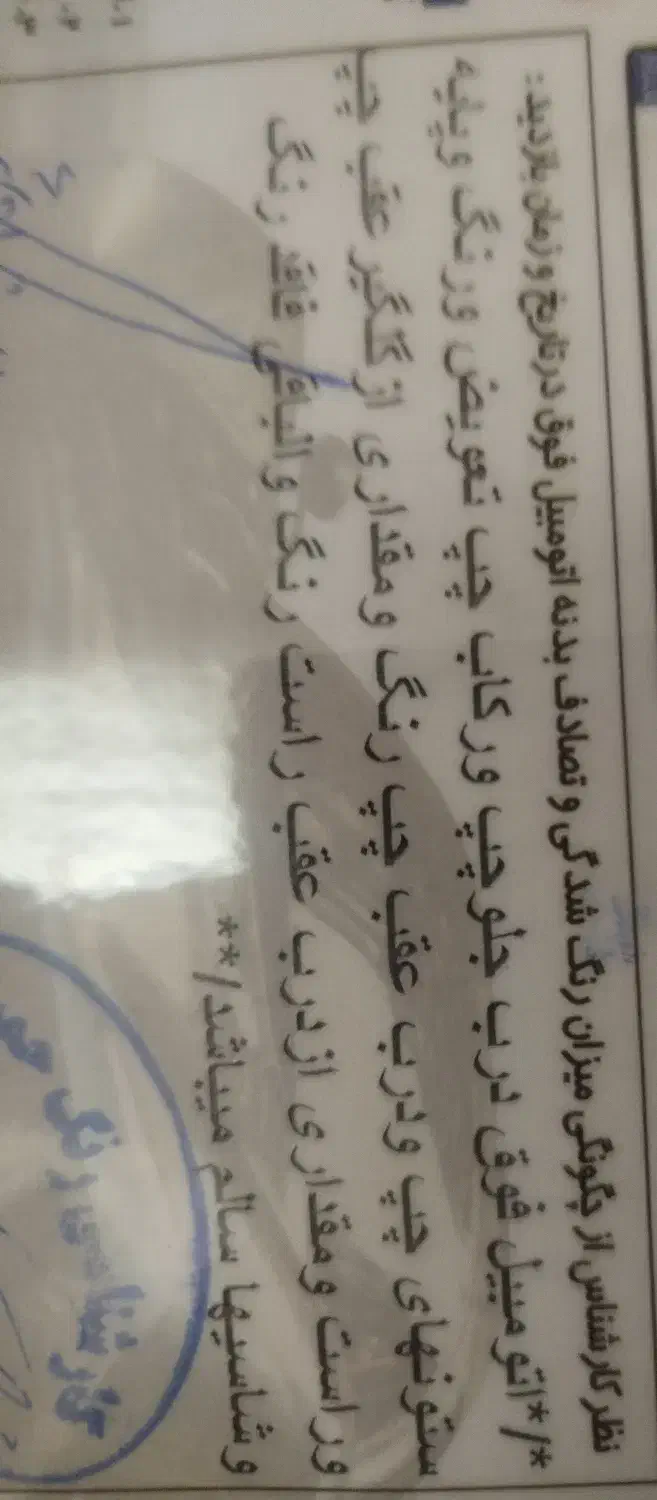 نظر کارشناس از چگونگی میزان رنگ شدگی و تصادف بدنه اتومبیل فوق در تاریخ و زمان بازدید:
*/*اتومبیل فوق درب جلو چپ ورکاب چپ تعویض ورنگ وپایه
ستونهای چپ ودرب عقب چپ رنگ ومقداری از گلگیر عقب چپ
وراست ومقداری ازدرب عقب راست رنگ و الباقی فاقد رنگ
وشاسیها سالم میباشد/**
کارشناسی رنگ